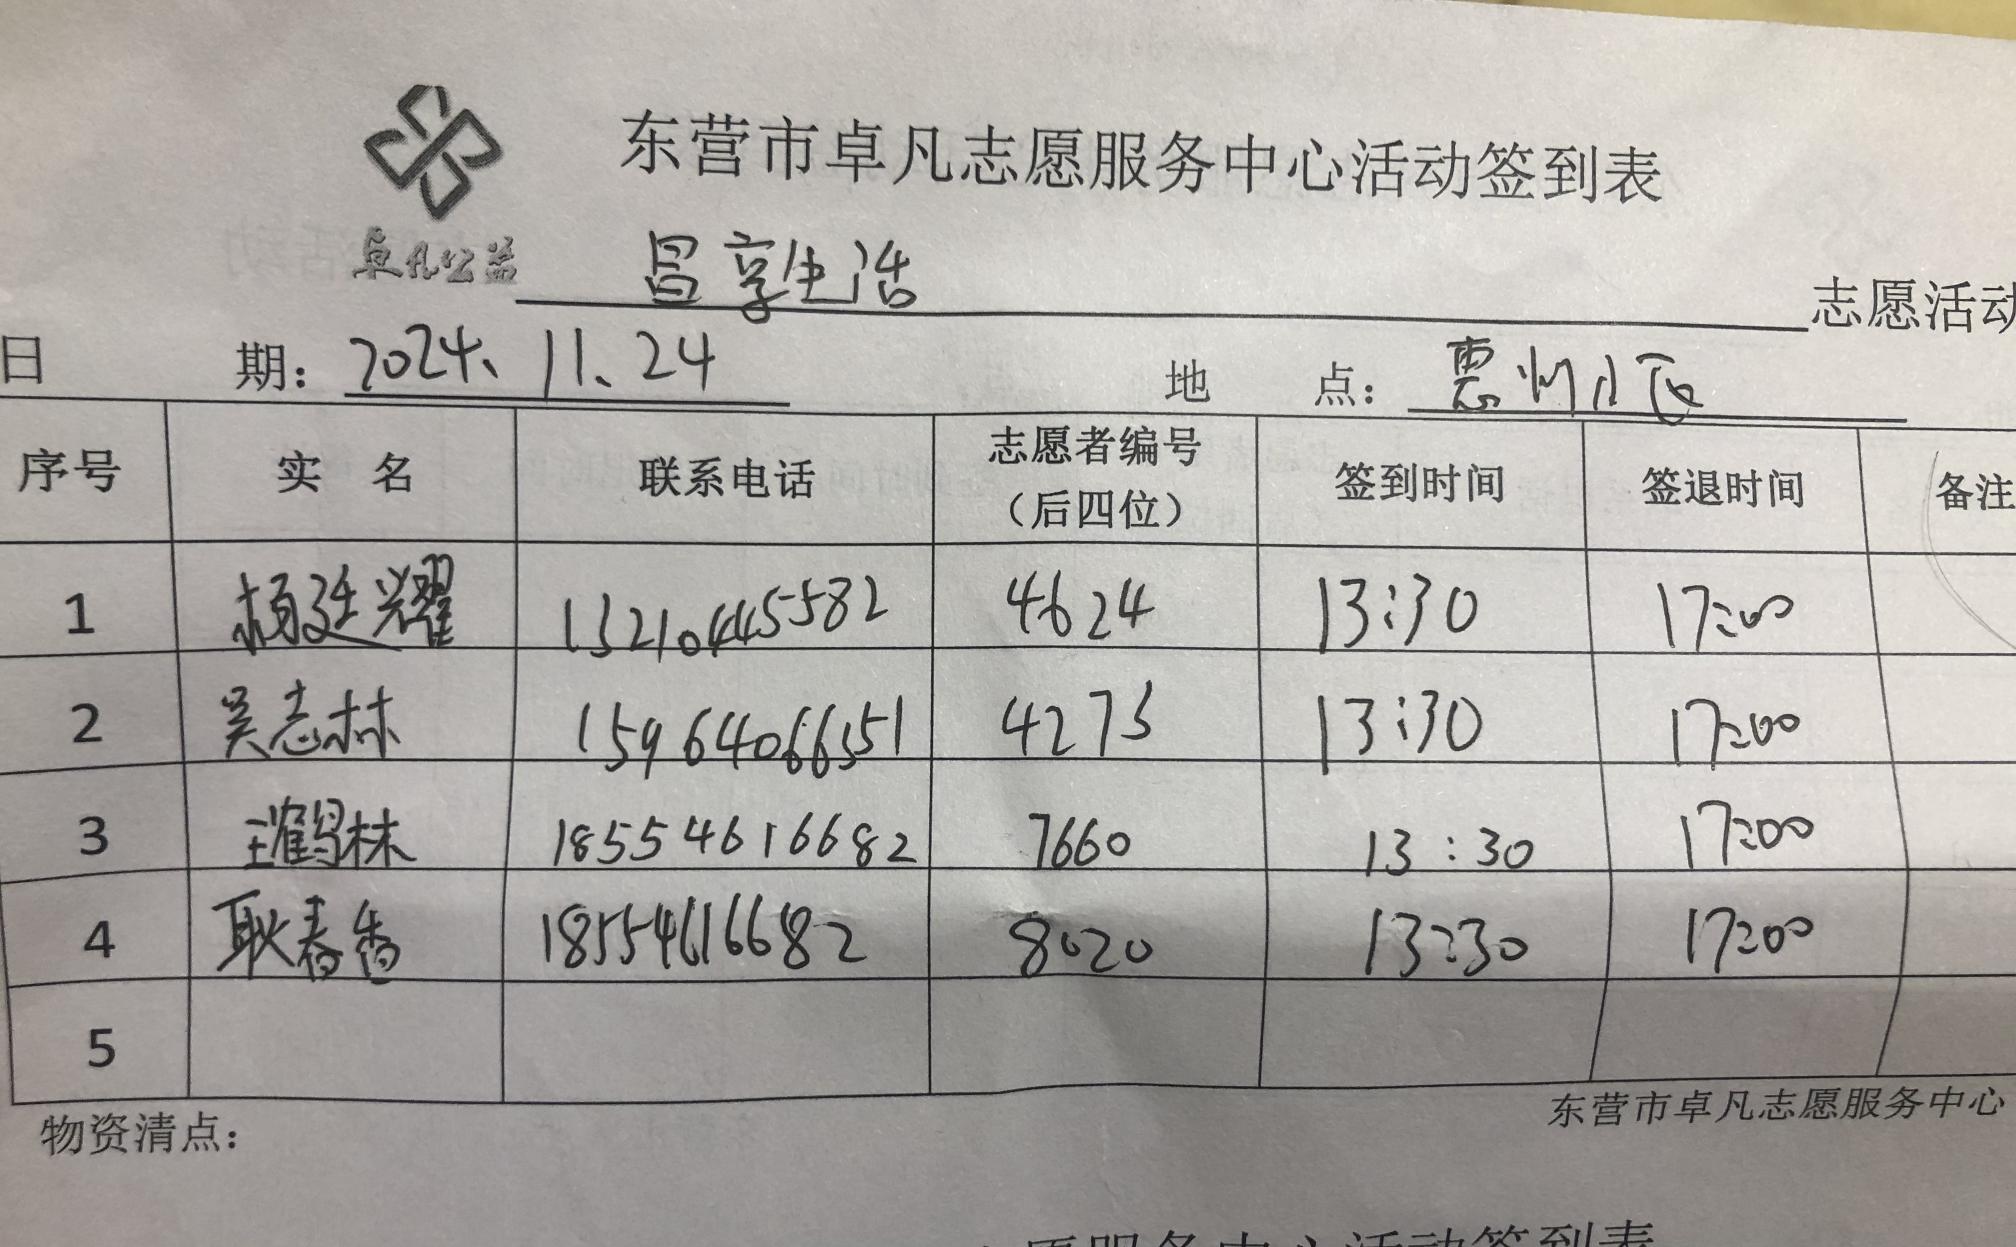 东营市卓凡志愿服务中心活动签到表
卓凡公益 昌享生活 志愿活动
日 期：2024、11、24 地 点：惠州小区
序号 实 名 联系电话 志愿者编号（后四位） 签到时间 签退时间 备注
1 杨廷耀 15210445582 4624 13:30 17:00
2 吴志林 15964066551 4275 13:30 17:00
3 王鹤林 18554616682 7660 13:30 17:00
4 耿春香 18554616682 8020 13:30 17:00
5
物资清点：
东营市卓凡志愿服务中心
愿服务中心活动签到表